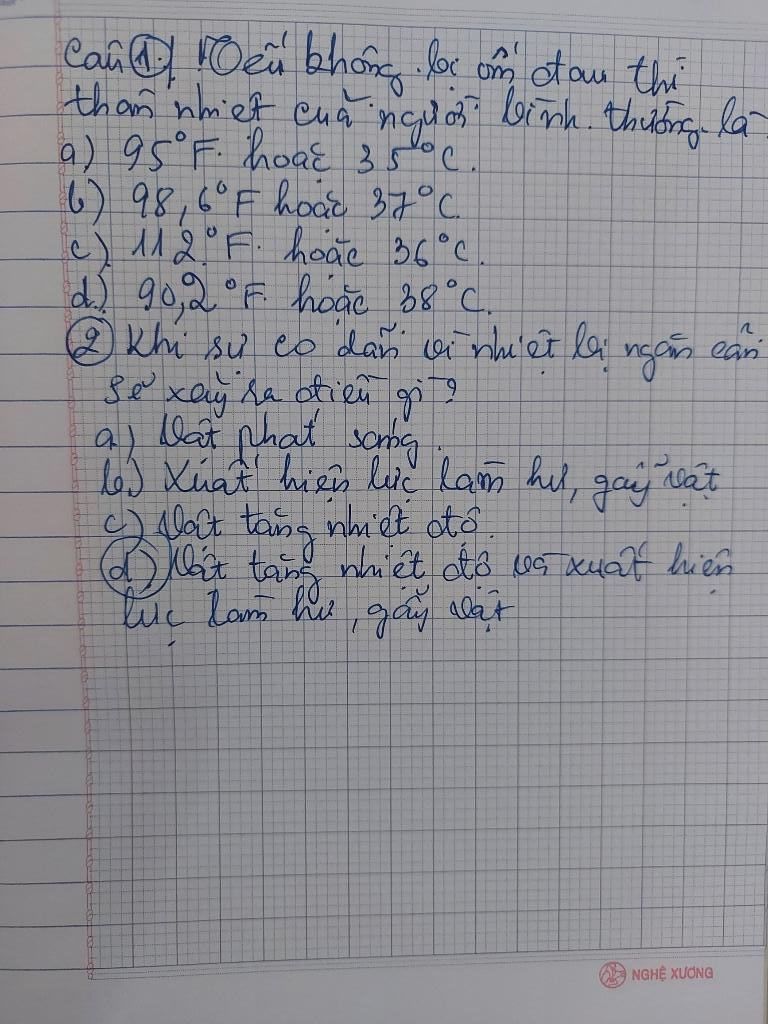 Câu 1./ Nếu không bị ốm đau thì
thân nhiệt của người bình thường là
a) 95°F hoặc 35°C.
b) 98,6°F hoặc 37°C
c) 112°F. hoặc 36°C.
d) 90,2°F. hoặc 38°C.
2 Khi sự co dãn vì nhiệt bị ngăn cản
sẽ xảy ra điều gì?
a) Vật phát sáng.
b) Xuất hiện lực làm hư, gãy vật
c) Vật tăng nhiệt độ.
d) Vật tăng nhiệt độ và xuất hiện
lực làm hư, gãy vật
NGHỆ XƯƠNG